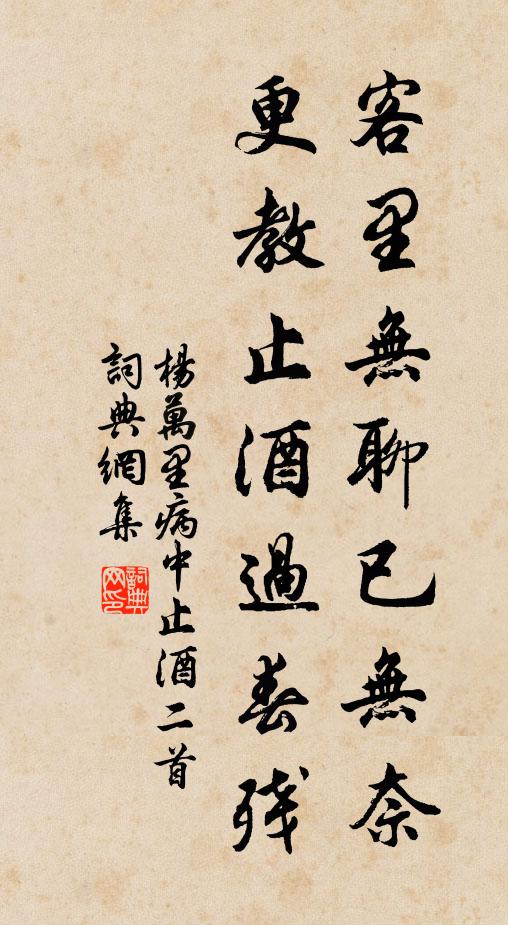 客里無聊已無奈
更教止酒過春残
楊萬里病中止酒二首
詞典網集
詞典网印